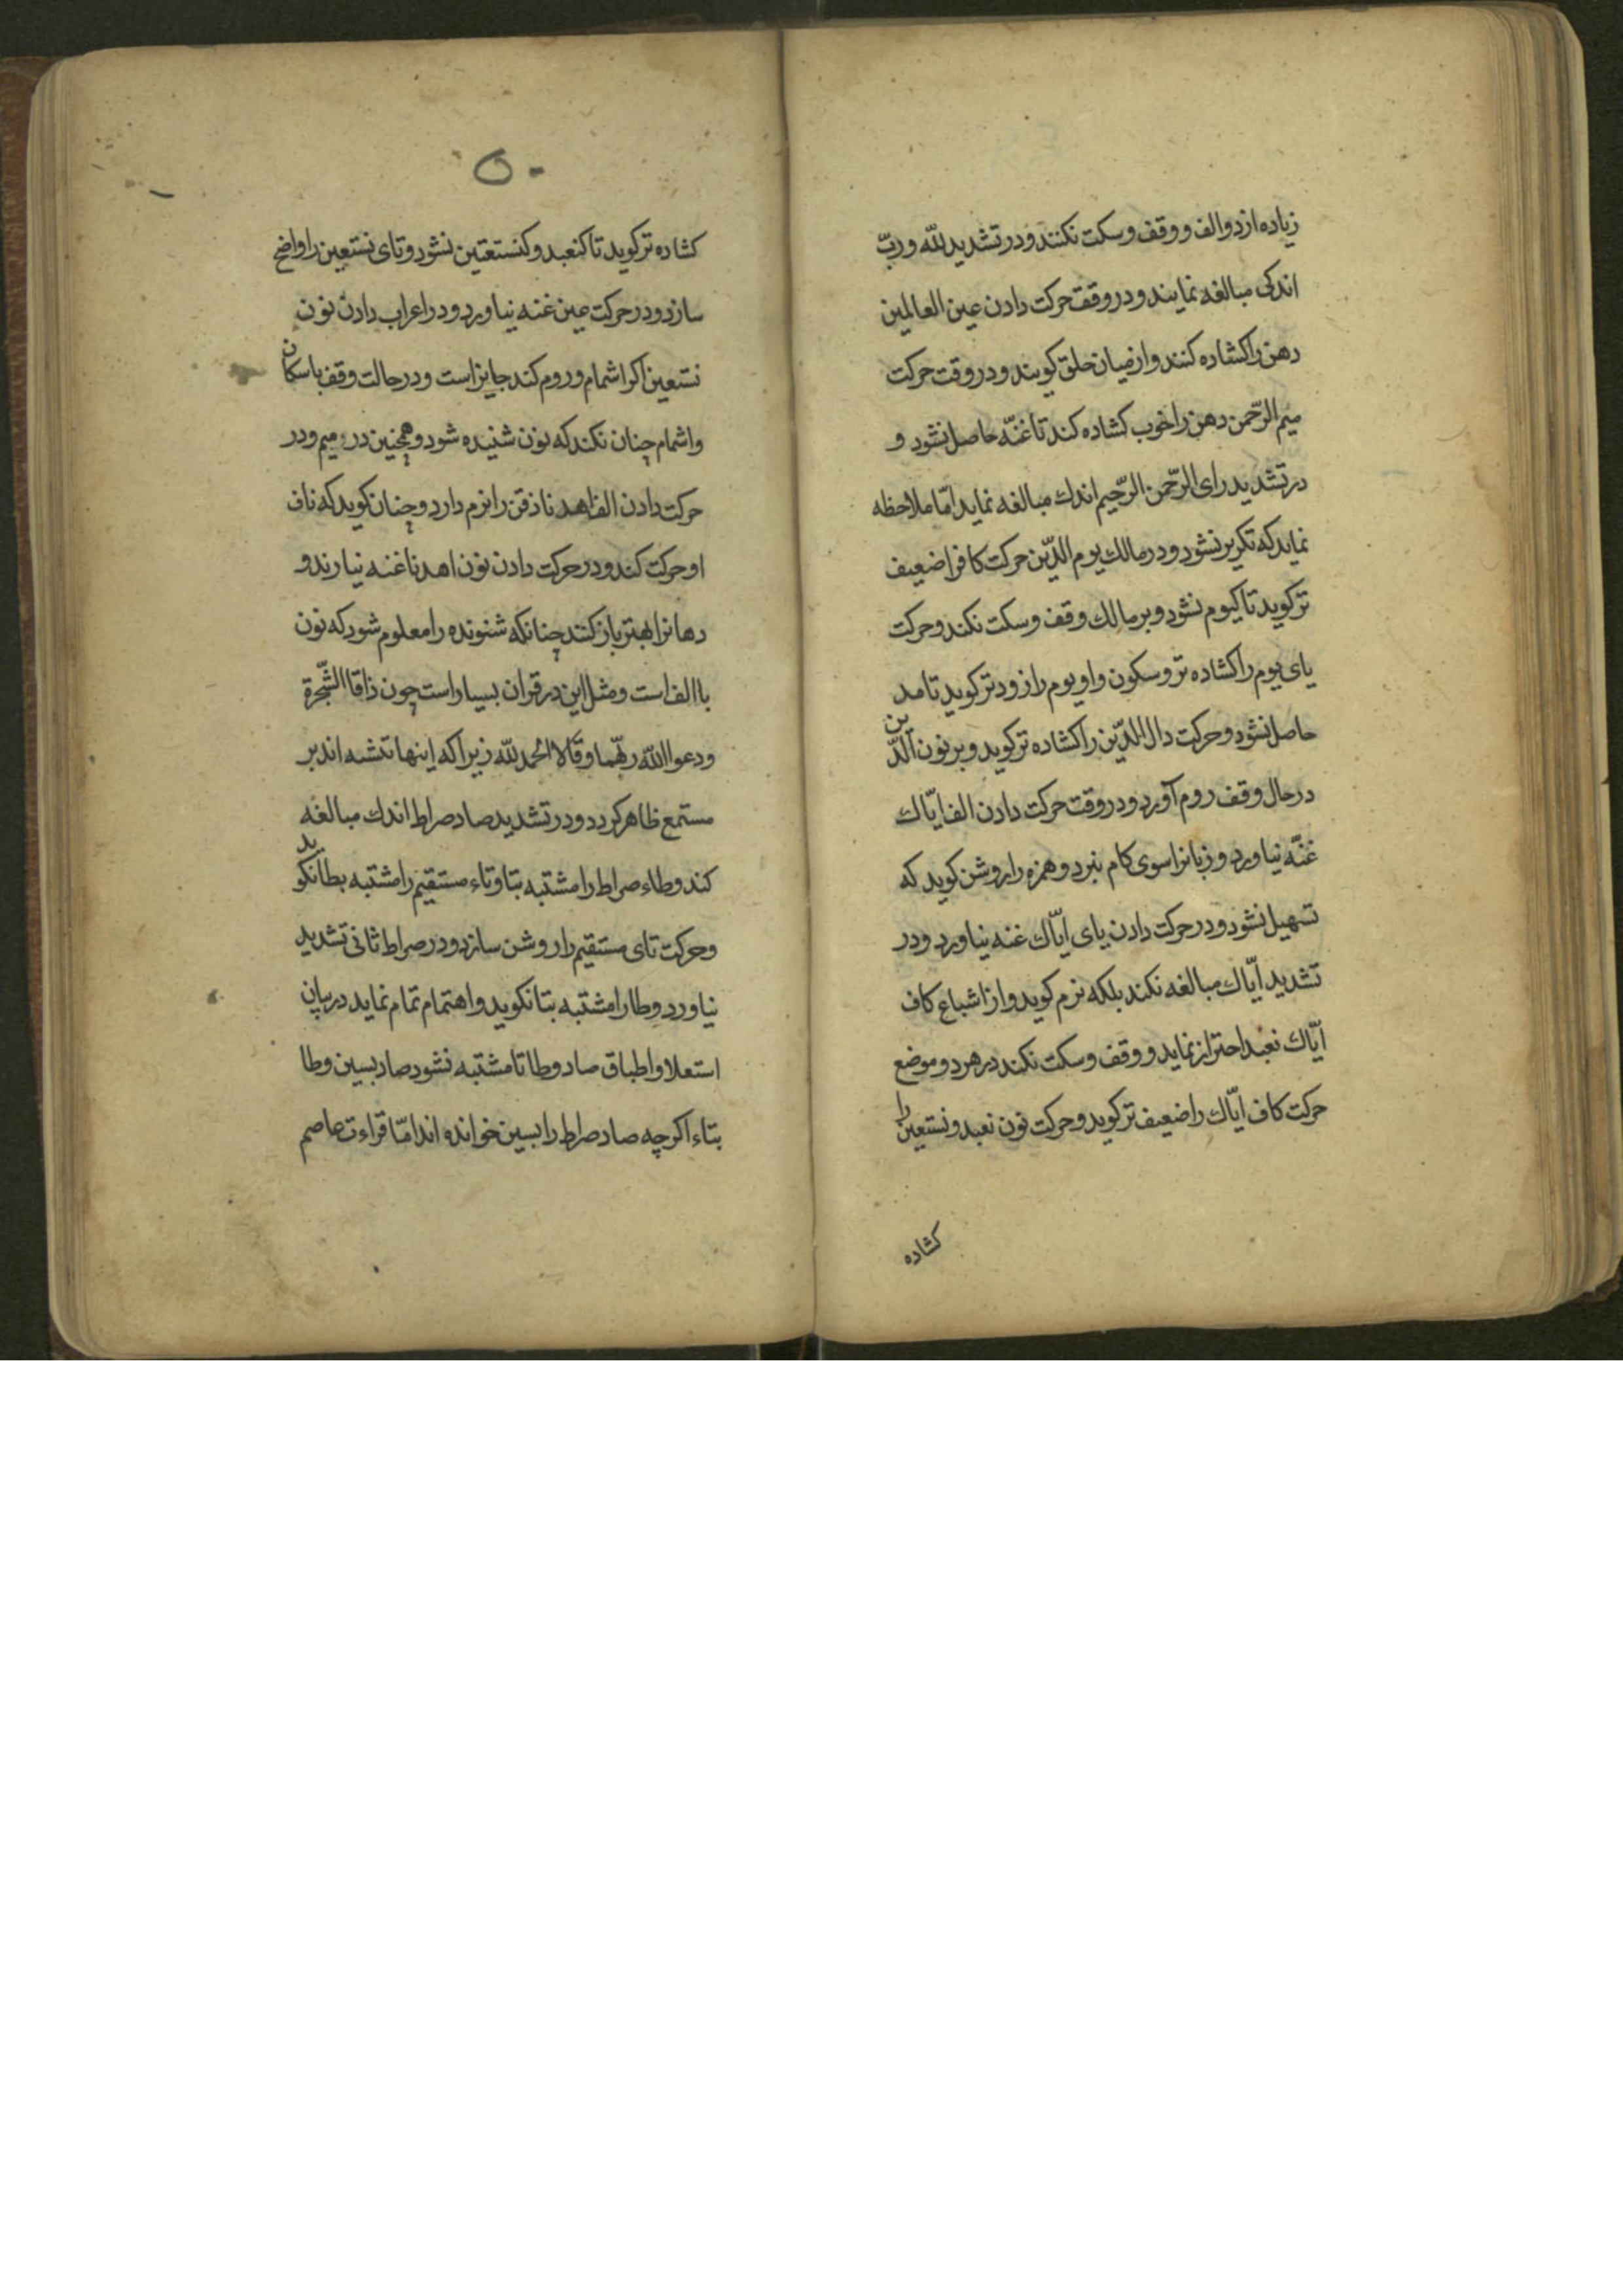 زیاده از دو الف و وقف و سکت نکنند و در تشدید للّه و ربّ
اندکی مبالغه نمایند و در وقت حرکت دادن عین العالمین
دهن را کشاده کنند و از میان حلق کویند و در وقت حرکت
میم الرّحمن دهن را خوب کشاده کند تا غنّه حاصل نشود و
در تشدید رای الرّحمن الرّحیم اندك مبالغه نماید امّا ملاحظه
نماید که تکریر نشود و در مالك یوم الدّین حرکت کاف را ضعیف
تر کوید تا کیوم نشود و بر مالك وقف و سکت نکند و حرکت
یای یوم را کشاده تر و سکون واو یوم را زودتر کوید تا مد
حاصل نشود و حرکت دال الدّین را کشاده تر کوید و بر نون الدّین
در حال وقف روم آورد و در وقت حرکت دادن الف ایّاك
غنّه نیاورد و زبانرا سوی کام نبرد و همزه را روشن کوید که
تسهیل نشود و در حرکت دادن یای ایّاك غنه نیاورد و در
تشدید ایّاك مبالغه نکند بلکه نرم کوید و از اشباع کاف
ایّاك نعبد احتراز نماید و وقف و سکت نکند در هر دو موضع
حرکت کاف ایّاك را ضعیف تر کوید و حرکت نون نعبد و نستعین را
کشاده
۵۰
کشاده تر کوید تا کنعبد و کنستعین نشود و تای نستعین را واضح
سازد و در حرکت عین غنه نیاورد و در اعراب دادن نون
نستعین اکر اشمام و روم کند جایز است و در حالت وقف باسکان
و اشمام چنان نکند که نون شنیده شود و همچنین در میم و در
حرکت دادن الف اهدنا ذقن را نرم دارد و چنان کوید که ناف
او حرکت کند و در حرکت دادن نون اهدنا غنه نیارند و
دهانرا بهتر باز کنند چنانکه شنونده را معلوم شود که نون
با الف است و مثل این در قران بسیار است چون ذاقا الشّجرة
و دعوا اللّه ربّهما و قالا الحمد للّه زیرا که اینها تثنیه اند بر
مستمع ظاهر کردد و در تشدید صاد صراط اندك مبالغه
کند و طاء صراط را مشتبه بتا و تاء مستقیم را مشتبه بطا نکوید
و حرکت تای مستقیم را روشن سازد و در صراط ثانی تشدید
نیاورد و طا را مشتبه بتا نکوید و اهتمام تمام نماید در بیان
استعلا و اطباق صاد و طا تا مشتبه نشود صاد بسین و طا
بتاء اکرچه صاد صراط را بسین خوانده اند امّا قراءت عاصم